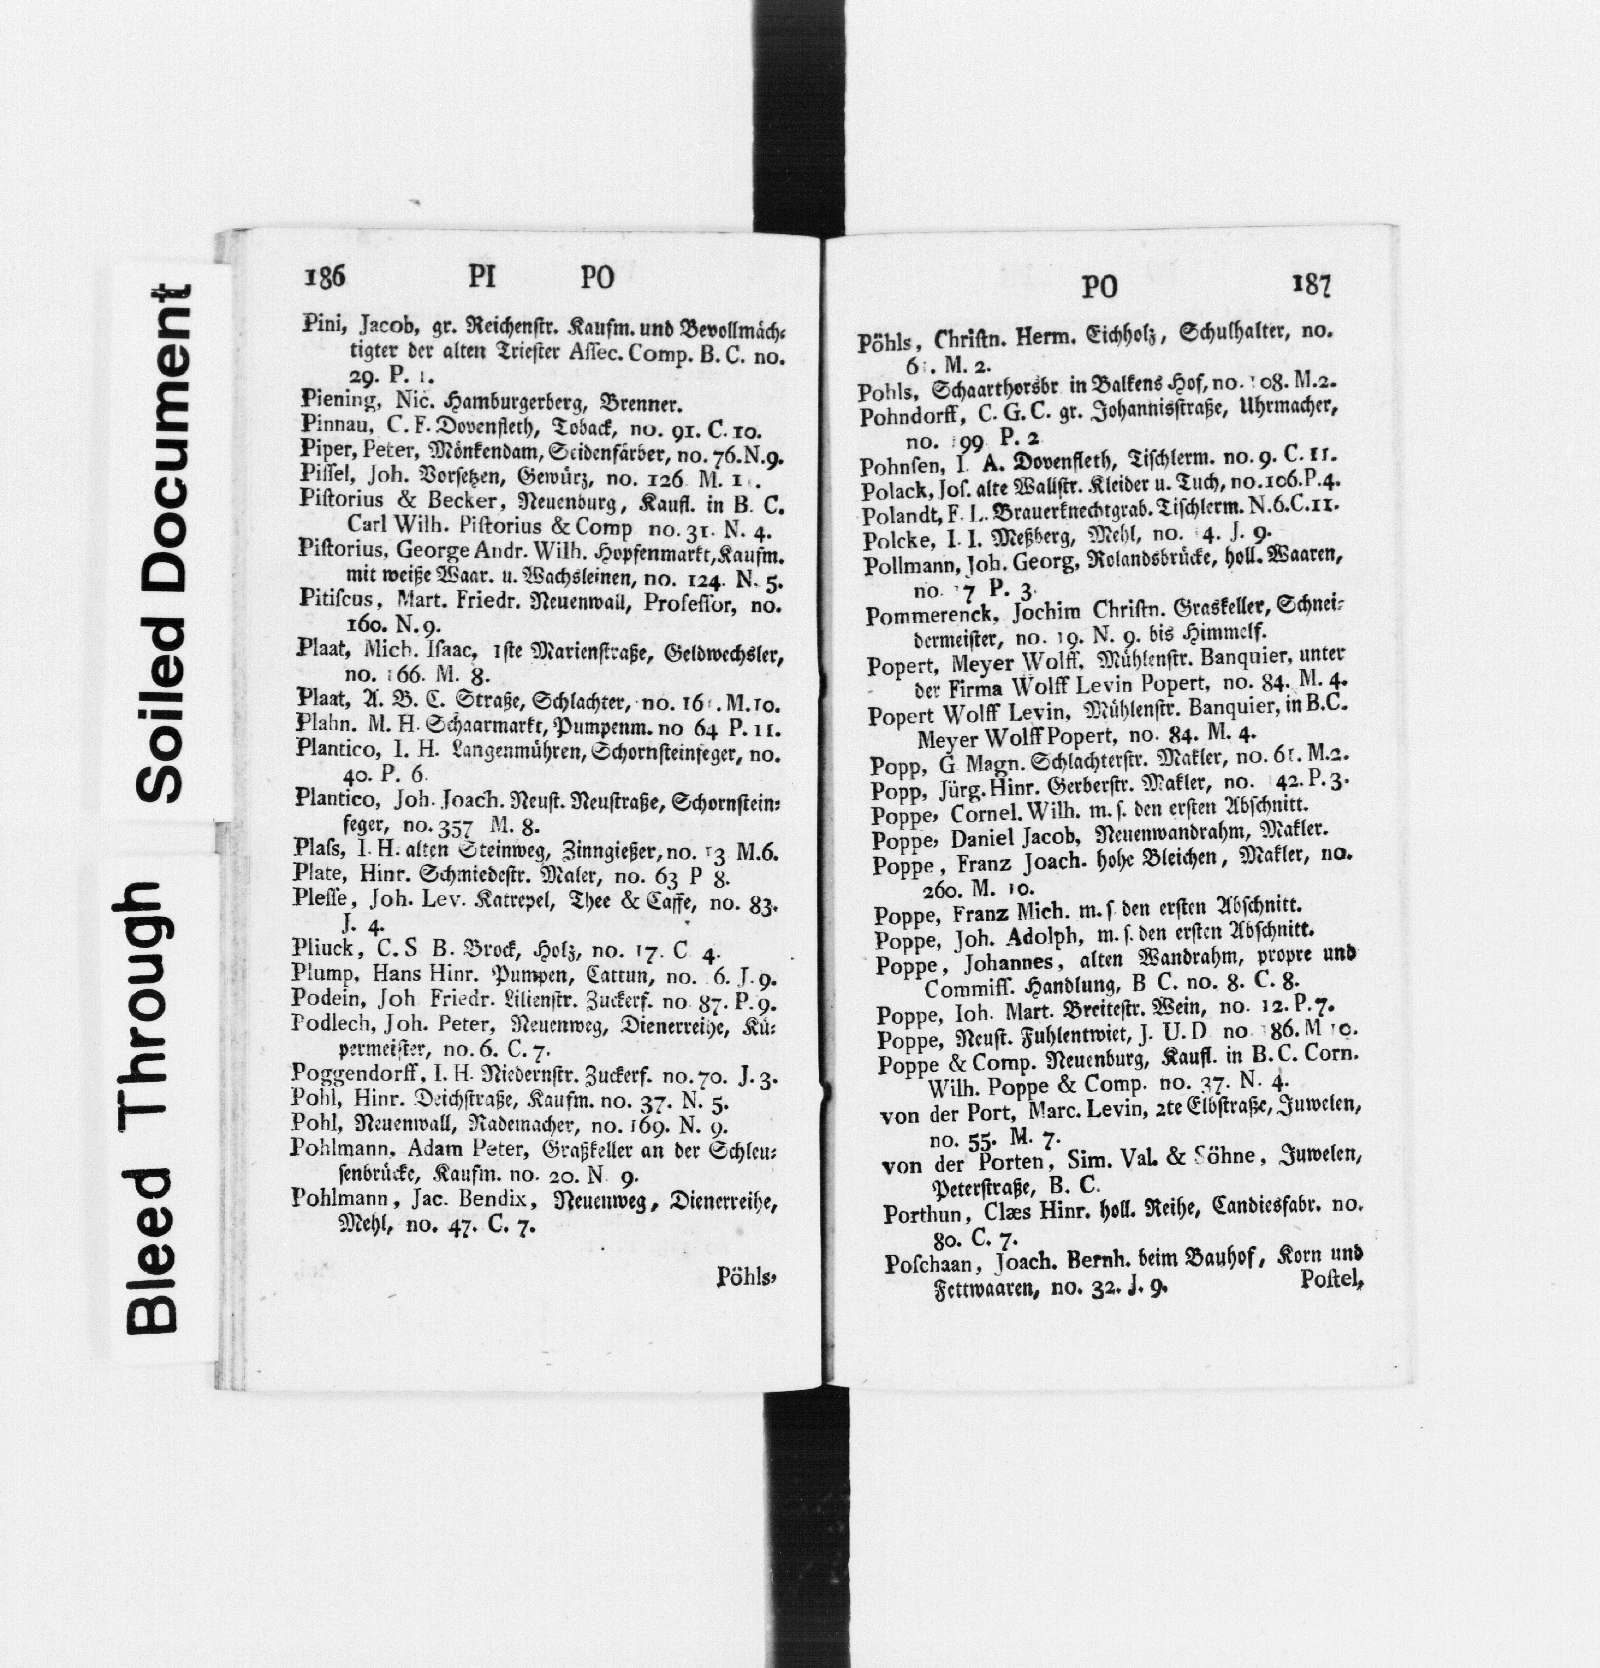 Soiled Document
Bleed Through
186 PI PO
Pini, Jacob, gr. Reichenstr. Kaufm. und Bevollmäch-
tigter der alten Triester Assec. Comp. B. C. no.
29. P. 1.
Piening, Nic. Hamburgerberg, Brenner.
Pinnau, C. F. Dovenfleth, Toback, no. 91. C. 10.
Piper, Peter, Mönkendam, Seidenfärber, no. 76. N. 9.
Pissel, Joh. Vorsetzen, Gewürz, no. 126 M. 1
Pistorius & Becker, Neuenburg, Kaufl. in B. C.
Carl Wilh. Pistorius & Comp no. 31. N. 4.
Pistorius, George Andr. Wilh. Hopfenmarkt, Kaufm.
mit weiße Waar. u. Wachsleinen, no. 124. N. 5.
Pitiscus, Mart. Friedr. Neuenwall, Professor, no.
160. N. 9.
Plaat, Mich. Isaac, 1ste Marienstraße, Geldwechsler,
no. 166. M. 8.
Plaat, A. B. C. Straße, Schlachter, no. M. 10.
Plahn. M. H. Schaarmarkt, Pumpenm. no 64 P. 11.
Plantico, I. H. Langenmühren, Schornsteinfeger, no.
40. P. 6.
Plantico, Joh. Joach. Neust. Neustraße, Schornstein-
feger, no. 357 M. 8.
Plass, I. H. alten Steinweg, Zinngießer, no. 13 M. 6.
Plate, Hinr. Schmiedestr. Maler, no. 63 P 8.
Plesse, Joh. Lev. Katrepel, Thee & Caffe, no. 83.
J. 4.
Pliuck, C. S B. Brock, Holz, no. 17. C 4.
Plump, Hans Hinr. Pumpen, Cattun, no. 6. J. 9.
Podein, Joh Friedr. Lilienstr. Zuckerf. no 87. P. 9.
Podlech, Joh. Peter, Neuenweg, Dienerreihe, Kü-
permeister, no. 6. C. 7.
Poggendorff, I. H. Niedernstr. Zuckerf. no. 70. J. 3.
Pohl, Hinr. Deichstraße, Kaufm. no. 37. N. 5.
Pohl, Neuenwall, Rademacher, no. 169. N. 9.
Pohlmann, Adam Peter, Graßkeller an der Schleu-
senbrücke, Kaufm. no. 20. N 9.
Pohlmann, Jac. Bendix, Neuenweg, Dienerreihe,
Mehl, no. 47. C. 7.
Pöhls,
PO 187
Pöhls, Christn. Herm. Eichholz, Schulhalter, no.
M. 2.
Pohls, Schaarthorsbr in Balkens Hof, no. 108. M. 2.
Pohndorff, C. G. C. gr. Johannisstraße, Uhrmacher,
no. 199 P. 2
Pohnsen, I. A. Dovenfleth, Tischlerm. no. 9. C. 11.
Polack, Jos. alte Wallstr. Kleider u. Tuch, no. 106. P. 4.
Polandt, F. L. Brauerknechtgrab. Tischlerm. N. 6. C. 11.
Polcke, I. I. Meßberg, Mehl, no. J. 9.
Pollmann, Joh. Georg, Rolandsbrücke, holl. Waaren,
no. P. 3.
Pommerenck, Jochim Christn. Graskeller, Schnei-
dermeister, no. 19. N. 9. bis Himmelf.
Popert, Meyer Wolff, Mühlenstr. Banquier, unter
der Firma Wolff Levin Popert, no. 84. M. 4.
Popert Wolff Levin, Mühlenstr. Banquier, in B. C.
Meyer Wolff Popert, no. 84. M. 4.
Popp, G Magn. Schlachterstr. Makler, no. 61. M. 2.
Popp, Jürg. Hinr. Gerberstr. Makler, no. 142. P. 3.
Poppe, Cornel. Wilh. m. s. den ersten Abschnitt.
Poppe, Daniel Jacob, Neuenwandrahm, Makler.
Poppe, Franz Joach. hohe Bleichen, Makler, no.
260. M. 10.
Poppe, Franz Mich. m. s den ersten Abschnitt.
Poppe, Joh. Adolph, m. s. den ersten Abschnitt.
Poppe, Johannes, alten Wandrahm, propre und
Commiss. Handlung, B C. no. 8. C. 8.
Poppe, Ioh. Mart. Breitestr. Wein, no. 12. P. 7.
Poppe, Neust. Fuhlentwiet, J. U. D no 186. M 10.
Poppe & Comp. Neuenburg, Kaufl. in B. C. Corn.
Wilh. Poppe & Comp. no. 37. N. 4.
von der Port, Marc. Levin, 2te Elbstraße, Juwelen,
no. 55. M. 7.
von der Porten, Sim. Val. & Söhne, Juwelen,
Peterstraße, B. C.
Porthun, Clæs Hinr. holl. Reihe, Candiesfabr. no.
80. C. 7.
Poschaan, Joach. Bernh. beim Bauhof, Korn und
Fettwaaren, no. 32. J. 9.
Postel,